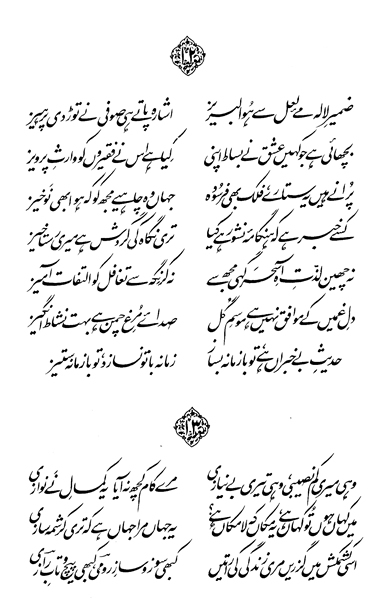 ۱۲
ضمیرِ لالہ مئے لعل سے ہوا لبریز اشارہ پاتے ہی صوفی نے توڑ دی پرہیز
بچھائی ہے جو کہیں عشق نے بساط اپنی کیا ہے اس نے فقیروں کو وارثِ پرویز
پرانے ہیں یہ ستارے فلک بھی فرسودہ جہاں وہ چاہیے مجھ کو کہ ہو ابھی نوخیز
کسے خبر ہے کہ ہنگامۂ نشور ہے کیا تری نگاہ کی گردش ہے میری رستاخیز
نہ چھین لذتِ آہِ سحرگہی مجھ سے نہ کر نگہ سے تغافل کو التفات آمیز
دلِ غمیں کے موافق نہیں ہے موسمِ گل صدائے مرغِ چمن ہے بہت نشاط انگیز
حدیثِ بے خبراں ہے تو با زمانہ بساز زمانہ با تو نسازد تو با زمانہ ستیز
۱۳
وہی میری کم نصیبی وہی تیری بے نیازی مرے کام کچھ نہ آیا یہ کمالِ نے نوازی
میں کہاں ہوں تو کہاں ہے یہ مکاں کہ لامکاں ہے؟ یہ جہاں مرا جہاں ہے کہ تری کرشمہ سازی
اسی کشمکش میں گزریں مری زندگی کی راتیں کبھی سوز و سازِ رومی کبھی پیچ و تابِ رازی